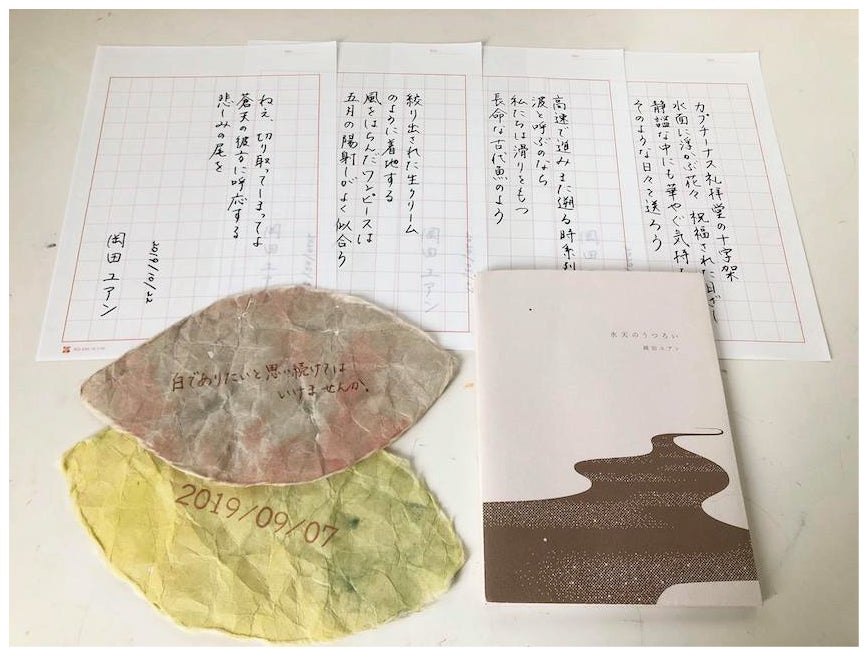 カプチーナス礼拝堂の十字架
水面に浮かぶ花々 祝福された日ざし
静謐な中にも華やぐ気持
そのような日々を送ろう
高速で進みまた遡る時系列
波と呼ぶのなら
私たちは滑りをもつ
長命な古代魚のよう
絞り出された生クリーム
のように着地する
風をはらんだワンピースは
五月の陽射しがよく似合う
ねえ、切り取ってしまってよ
蒼天の彼方に呼応する
悲しみの尾を
2019/10/22
岡田ユアン
白でありたいと思い続けては
いけませんか。
2019/09/07
水天のうつろい
岡田ユアン